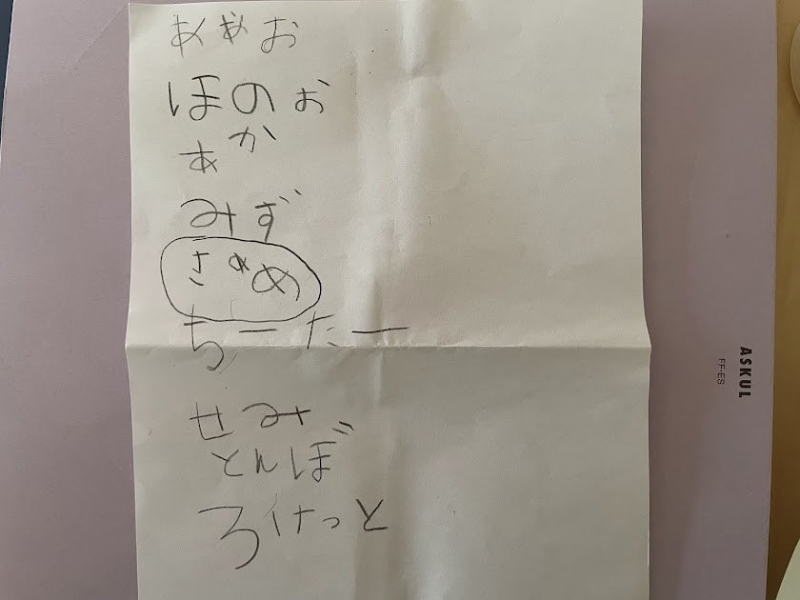 ああお
ほのお
あか
みず
さぁめ
ちーたー
せみ
とんぼ
ろけっと
ASKUL
FF-ES